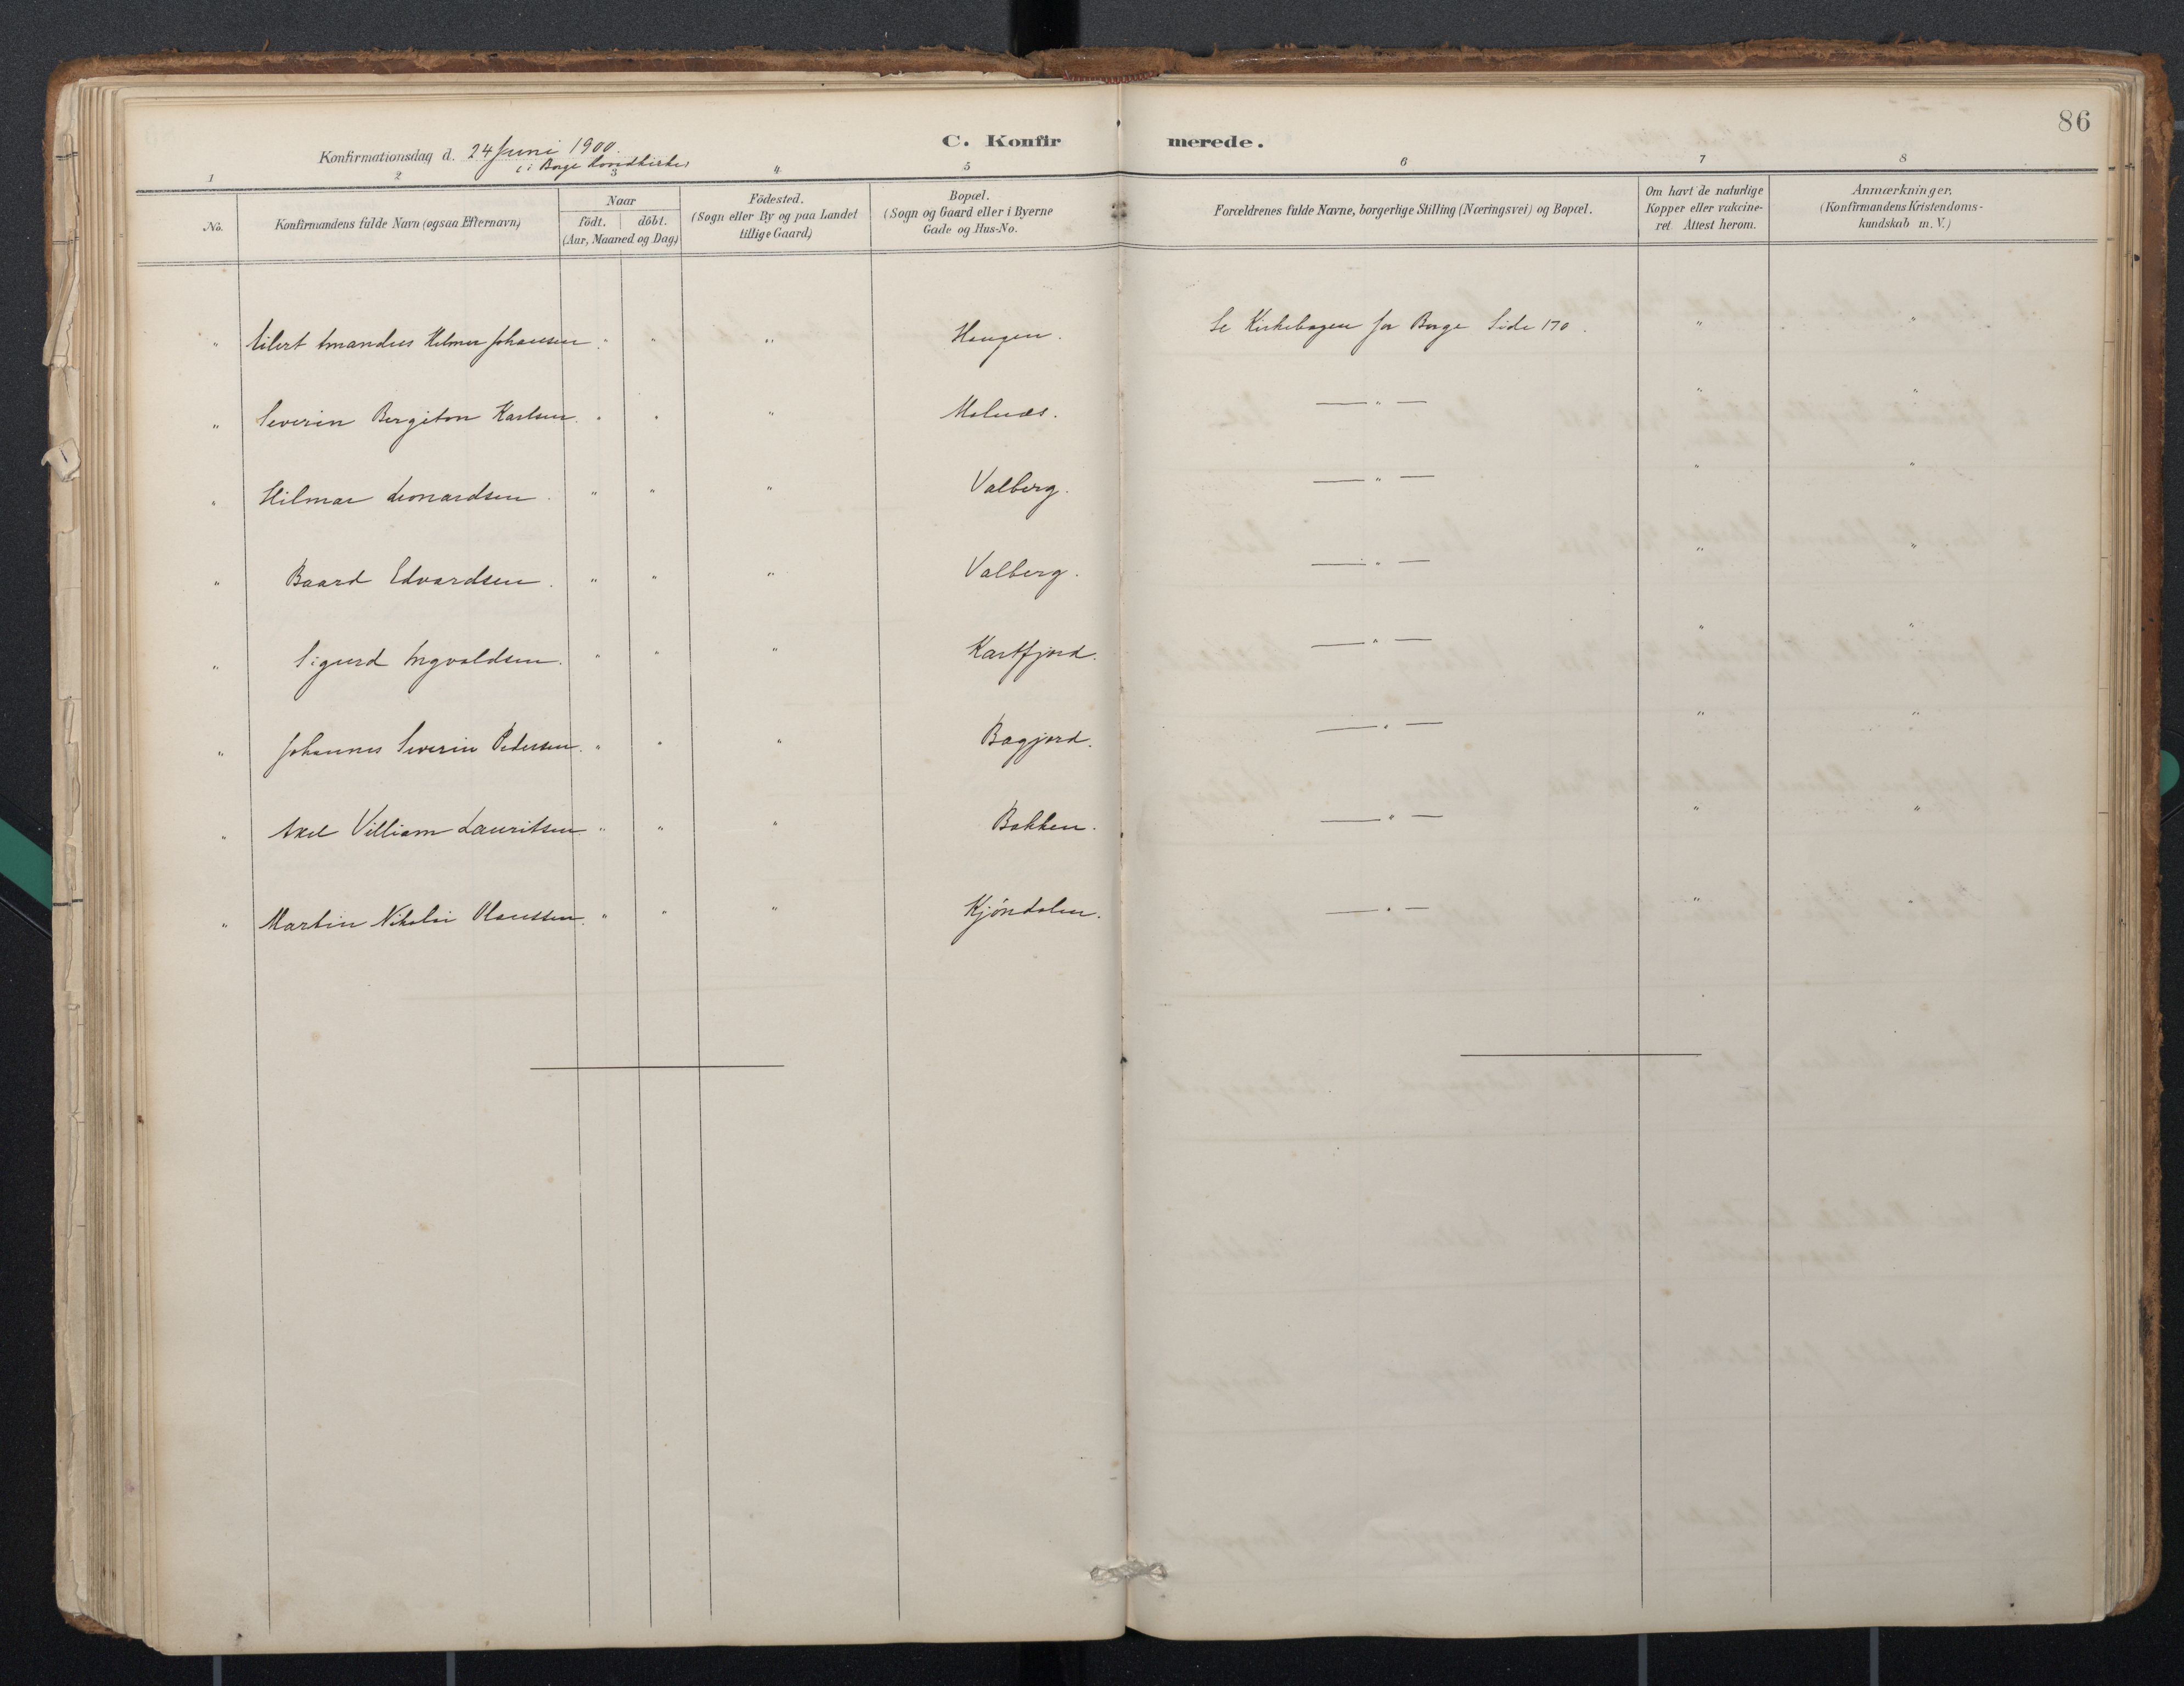 86
C. Konfirmerede.
Konfirmationsdag d. 24 Juni 1900.
(i Borge Hovedkirke)
1 2 3 4 5 6 7 8
No.
Konfirmandens fulde Navn (ogsaa Efternavn)
Naar
födt. döbt.
(Aar, Maaned og Dag)
Födested.
(Sogn eller By og paa Landet
tillige Gaard)
Bopæl.
(Sogn og Gaard eller i Byerne
Gade og Hus-No.
Forældrenes fulde Navne, borgerlige Stilling (Næringsvei) og Bopæl.
Om havt de naturlige
Kopper eller vakcine-
ret Attest herom.
Anmærkninger,
(Konfirmandens Kristendoms-
kundskab m. V.)
" Eilert Amandus Hilmer Johansen. " " " Haugen. Se Kirkebogen for Borge Side 170. " "
" Severin Bergiton Karlsen. " " " Molnæs. — " — " "
" Hilmar Leonardsen. " " " Valberg. — " — " "
" Baard Edvardsen. " " " Valberg. — " — " "
" Sigurd Ingvaldsen. " " " Kartfjord. — " — " "
" Johannes Severin Pedersen. " " " Bagjord. — " — " "
" Axel Villiam Lauritsen " " " Bakken. — " — " "
" Martin Nikolai Olaussen. " " " Kjöndalen. — " — " "